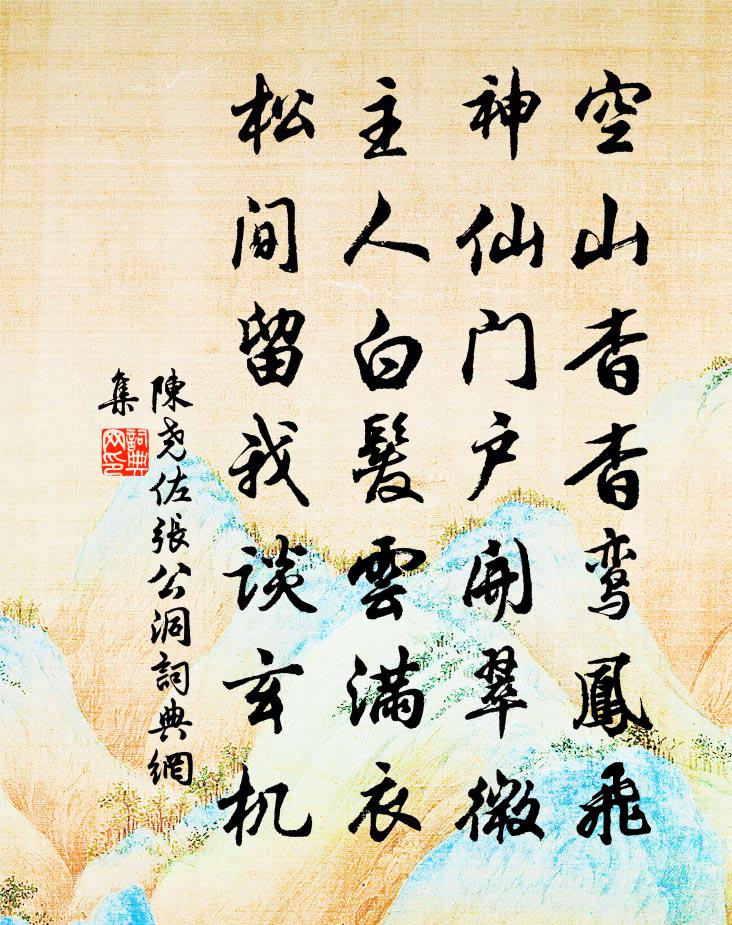 空山杳杳鸾鳳飛
神仙门户開翠微
主人白髮雲满衣
松间留我谈玄机
陳尧佐張公洞詞典網
集
詞典
网印